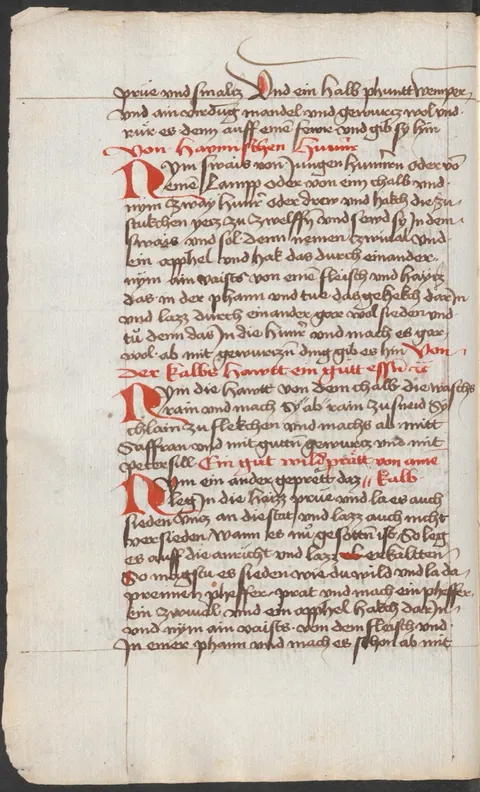 prüe vnd smaltz Vnd ein halb phuntt wemper
vnd ain virdūg mandel vnd gewurcz wol vnd
rür es denn auff einē fewr vnd gib sy hin
Von haymischen hūnr
Nym swais von Jungen hunern oder võ
einē Lampp oder von eim chalb vnd
nym zway hunr oder drew vnd hakh die zu
stukchen yecz zu zwelffn vnd sewd sy In dem
swais vnd sol denn nemen zwiual vnd
ein apphel vnd hak das durch einander
nym ain vaists von einē fleisch vnd haytz
das in der phann vnd tue das gehekch dar In
vnd lazz durch einander gar wol sieden vnd
tů denn das In die hunr vnd mach es gar
wol ab mit gewurczn ding gib es hin Von
der kalbs hawtt ein gutt essn̄
Nym die hawtt von dem chalb die waschs
rain vnd mach sy ab rain zusneid sy
chlain zu flekchen vnd machs ab mitt
Saffran vnd mit gutn̄ gewurcz vnd mit
petersill Ein gut wildprätt von aine
Nym ein ander geprëtt daz // kalb
leg In die haizz prüe vnd la es auch
sieden vncz an die stat vnd lazz auch nicht
versieden Wann es nu gesotn̄ ist So leg
es auff die anricht vnd lazz erkaltten
So magstu es sieden wie du wild vnd la da
prennen pheffer prat vnd mach ein pheffer
ein zwiual vnd ein apphel hakch dar In
vnd nym ain vaists von dem fleisch vnd
In einer phann vnd mach es schon ab mit